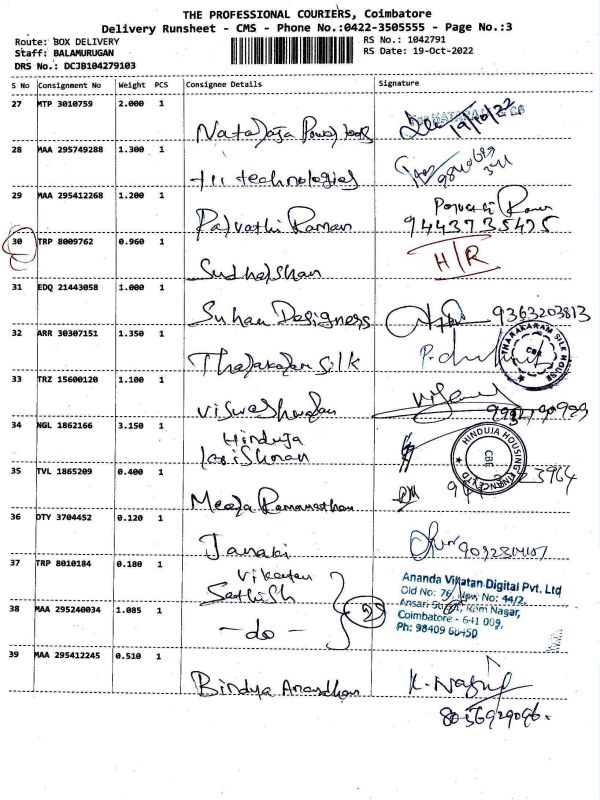 THE PROFESSIONAL COURIERS, Coimbatore
Delivery Runsheet - CMS - Phone No.:0422-3505555 - Page No.:3
Route: BOX DELIVERY
RS No.: 1042791
Staff: BALAMURUGAN
RS Date: 19-Oct-2022
DRS No.: DCJB104279103
S No Consignment No Weight PCS Consignee Details Signature
27 MTP 3010759 2.000 1
Nataraja Power tools 19/10/22
28 MAA 295749288 1.300 1
tri technologies
29 MAA 295412268 1.200 1
Parvathi Raman
9443735475
30 TRP 8009762 0.960 1
Sudharshan H/R
31 EDQ 21443058 1.000 1
Suhan Designers 9363203813
32 ARR 30307151 1.350 1
Tharakaram Silk
THARAKARAM SILK HOUSE
CBE
33 TRZ 15600120 1.100 1
34 NGL 1862166 3.150 1
Hinduja
HINDUJA HOUSING FINANCE LTD
CBE
35 TVL 1865209 0.400 1
Meera Ramanathan
36 DTY 3704452 0.120 1
Janaki
37 TRP 8010184 0.180 1
Vikatan
Sathish
38 MAA 295240034 1.085 1
- do -
Ananda Vikatan Digital Pvt. Ltd
Old No: 76, New No: 44/2,
Ansari Street, Ram Nagar,
Coimbatore - 641 009,
Ph: 98409 68450
39 MAA 295412245 0.510 1
Bindya Anandhan